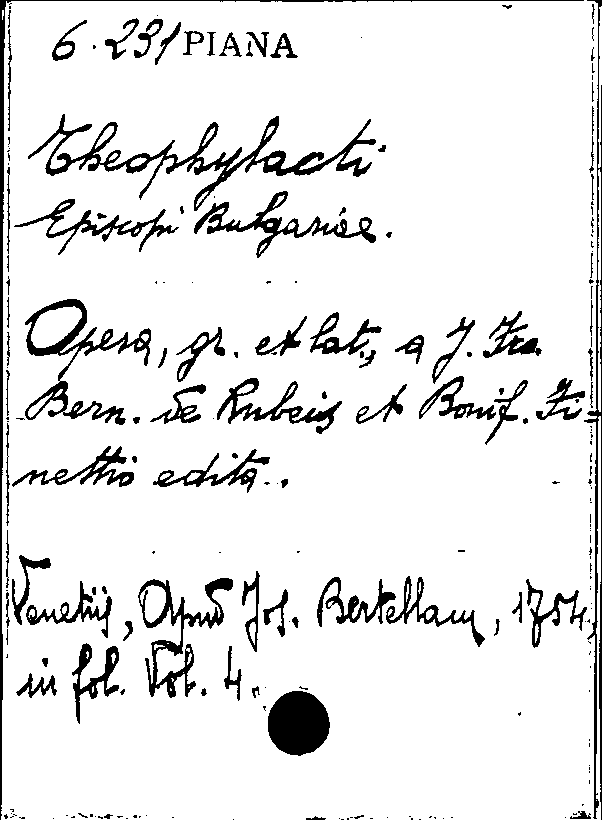 6.231 PIANA
Theophylacti
Episcopi Bulgariae.
Opera, gr. et lat., a J. Fra.
Bern. de Rubeis et Bonif. Fi=
nettio edita..
Venetiis, Apud Jos. Bertellam, 1754,
in fol. Vol. 4.